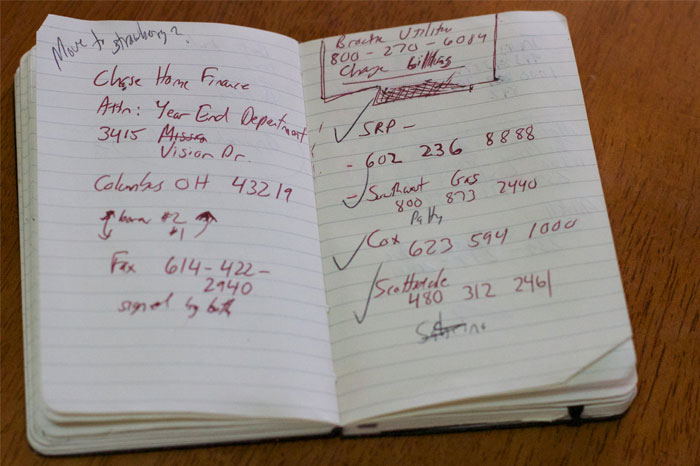 Move to strawberry?
Chase Home Finance
Attn: Year End Department
3415 Mission
Vision Dr.
Columbus OH 43219
#2
#1
Fax 614-422-
2940
signed by both
Utilities
800-270-6084
Change billing
SRP -
- 602 236 8888
- Southwest Gas
800 873 2440
Cox 623 594 1000
Scottsdale
480 312 2461